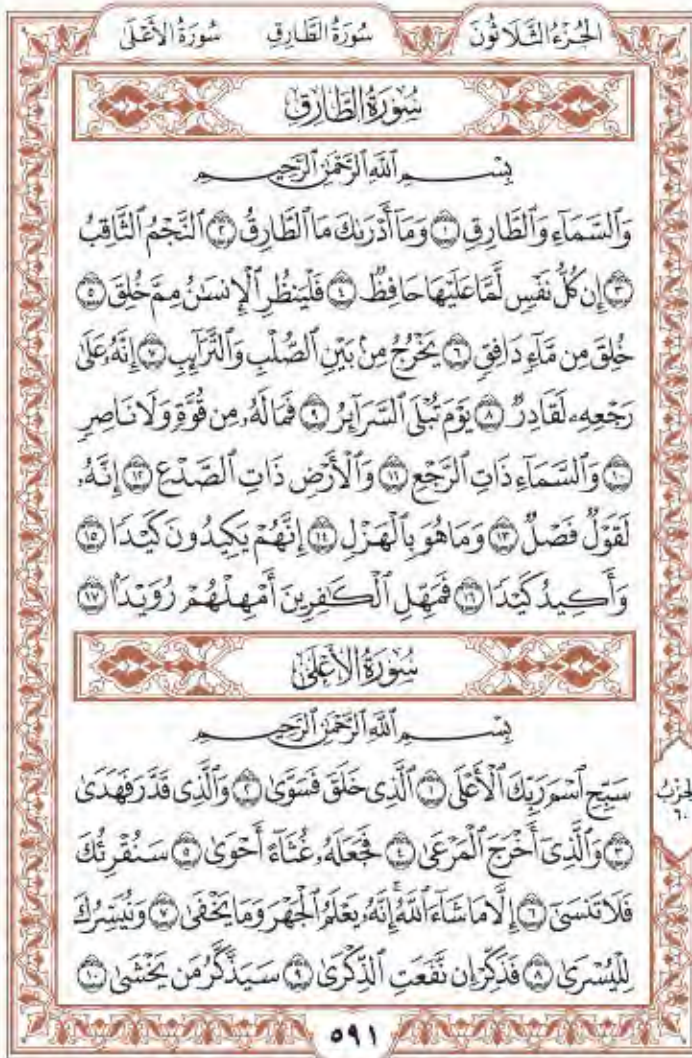 الجُزْءُ الثَّلَاثُونَ سُورَةُ الطَّارِقِ سُورَةُ الأَعْلَى
سُورَةُ الطَّارِقِ
بِسْمِ ٱللَّهِ ٱلرَّحْمَٰنِ ٱلرَّحِيمِ
وَٱلسَّمَآءِ وَٱلطَّارِقِ ١ وَمَآ أَدْرَىٰكَ مَا ٱلطَّارِقُ ٢ ٱلنَّجْمُ ٱلثَّاقِبُ
٣ إِن كُلُّ نَفْسٍ لَّمَّا عَلَيْهَا حَافِظٌ ٤ فَلْيَنظُرِ ٱلْإِنسَٰنُ مِمَّ خُلِقَ ٥
خُلِقَ مِن مَّآءٍ دَافِقٍ ٦ يَخْرُجُ مِنۢ بَيْنِ ٱلصُّلْبِ وَٱلتَّرَآئِبِ ٧ إِنَّهُۥ عَلَىٰ
رَجْعِهِۦ لَقَادِرٌ ٨ يَوْمَ تُبْلَى ٱلسَّرَآئِرُ ٩ فَمَا لَهُۥ مِن قُوَّةٍ وَلَا نَاصِرٍ
١٠ وَٱلسَّمَآءِ ذَاتِ ٱلرَّجْعِ ١١ وَٱلْأَرْضِ ذَاتِ ٱلصَّدْعِ ١٢ إِنَّهُۥ
لَقَوْلٌ فَصْلٌ ١٣ وَمَا هُوَ بِٱلْهَزْلِ ١٤ إِنَّهُمْ يَكِيدُونَ كَيْدًا ١٥
وَأَكِيدُ كَيْدًا ١٦ فَمَهِّلِ ٱلْكَٰفِرِينَ أَمْهِلْهُمْ رُوَيْدًۢا ١٧
سُورَةُ الأَعْلَىٰ
بِسْمِ ٱللَّهِ ٱلرَّحْمَٰنِ ٱلرَّحِيمِ
سَبِّحِ ٱسْمَ رَبِّكَ ٱلْأَعْلَى ١ ٱلَّذِى خَلَقَ فَسَوَّىٰ ٢ وَٱلَّذِى قَدَّرَ فَهَدَىٰ
٣ وَٱلَّذِىٓ أَخْرَجَ ٱلْمَرْعَىٰ ٤ فَجَعَلَهُۥ غُثَآءً أَحْوَىٰ ٥ سَنُقْرِئُكَ
فَلَا تَنسَىٰٓ ٦ إِلَّا مَا شَآءَ ٱللَّهُۚ إِنَّهُۥ يَعْلَمُ ٱلْجَهْرَ وَمَا يَخْفَىٰ ٧ وَنُيَسِّرُكَ
لِلْيُسْرَىٰ ٨ فَذَكِّرْ إِن نَّفَعَتِ ٱلذِّكْرَىٰ ٩ سَيَذَّكَّرُ مَن يَخْشَىٰ ١٠
الحِزْبُ
٦٠
٥٩١